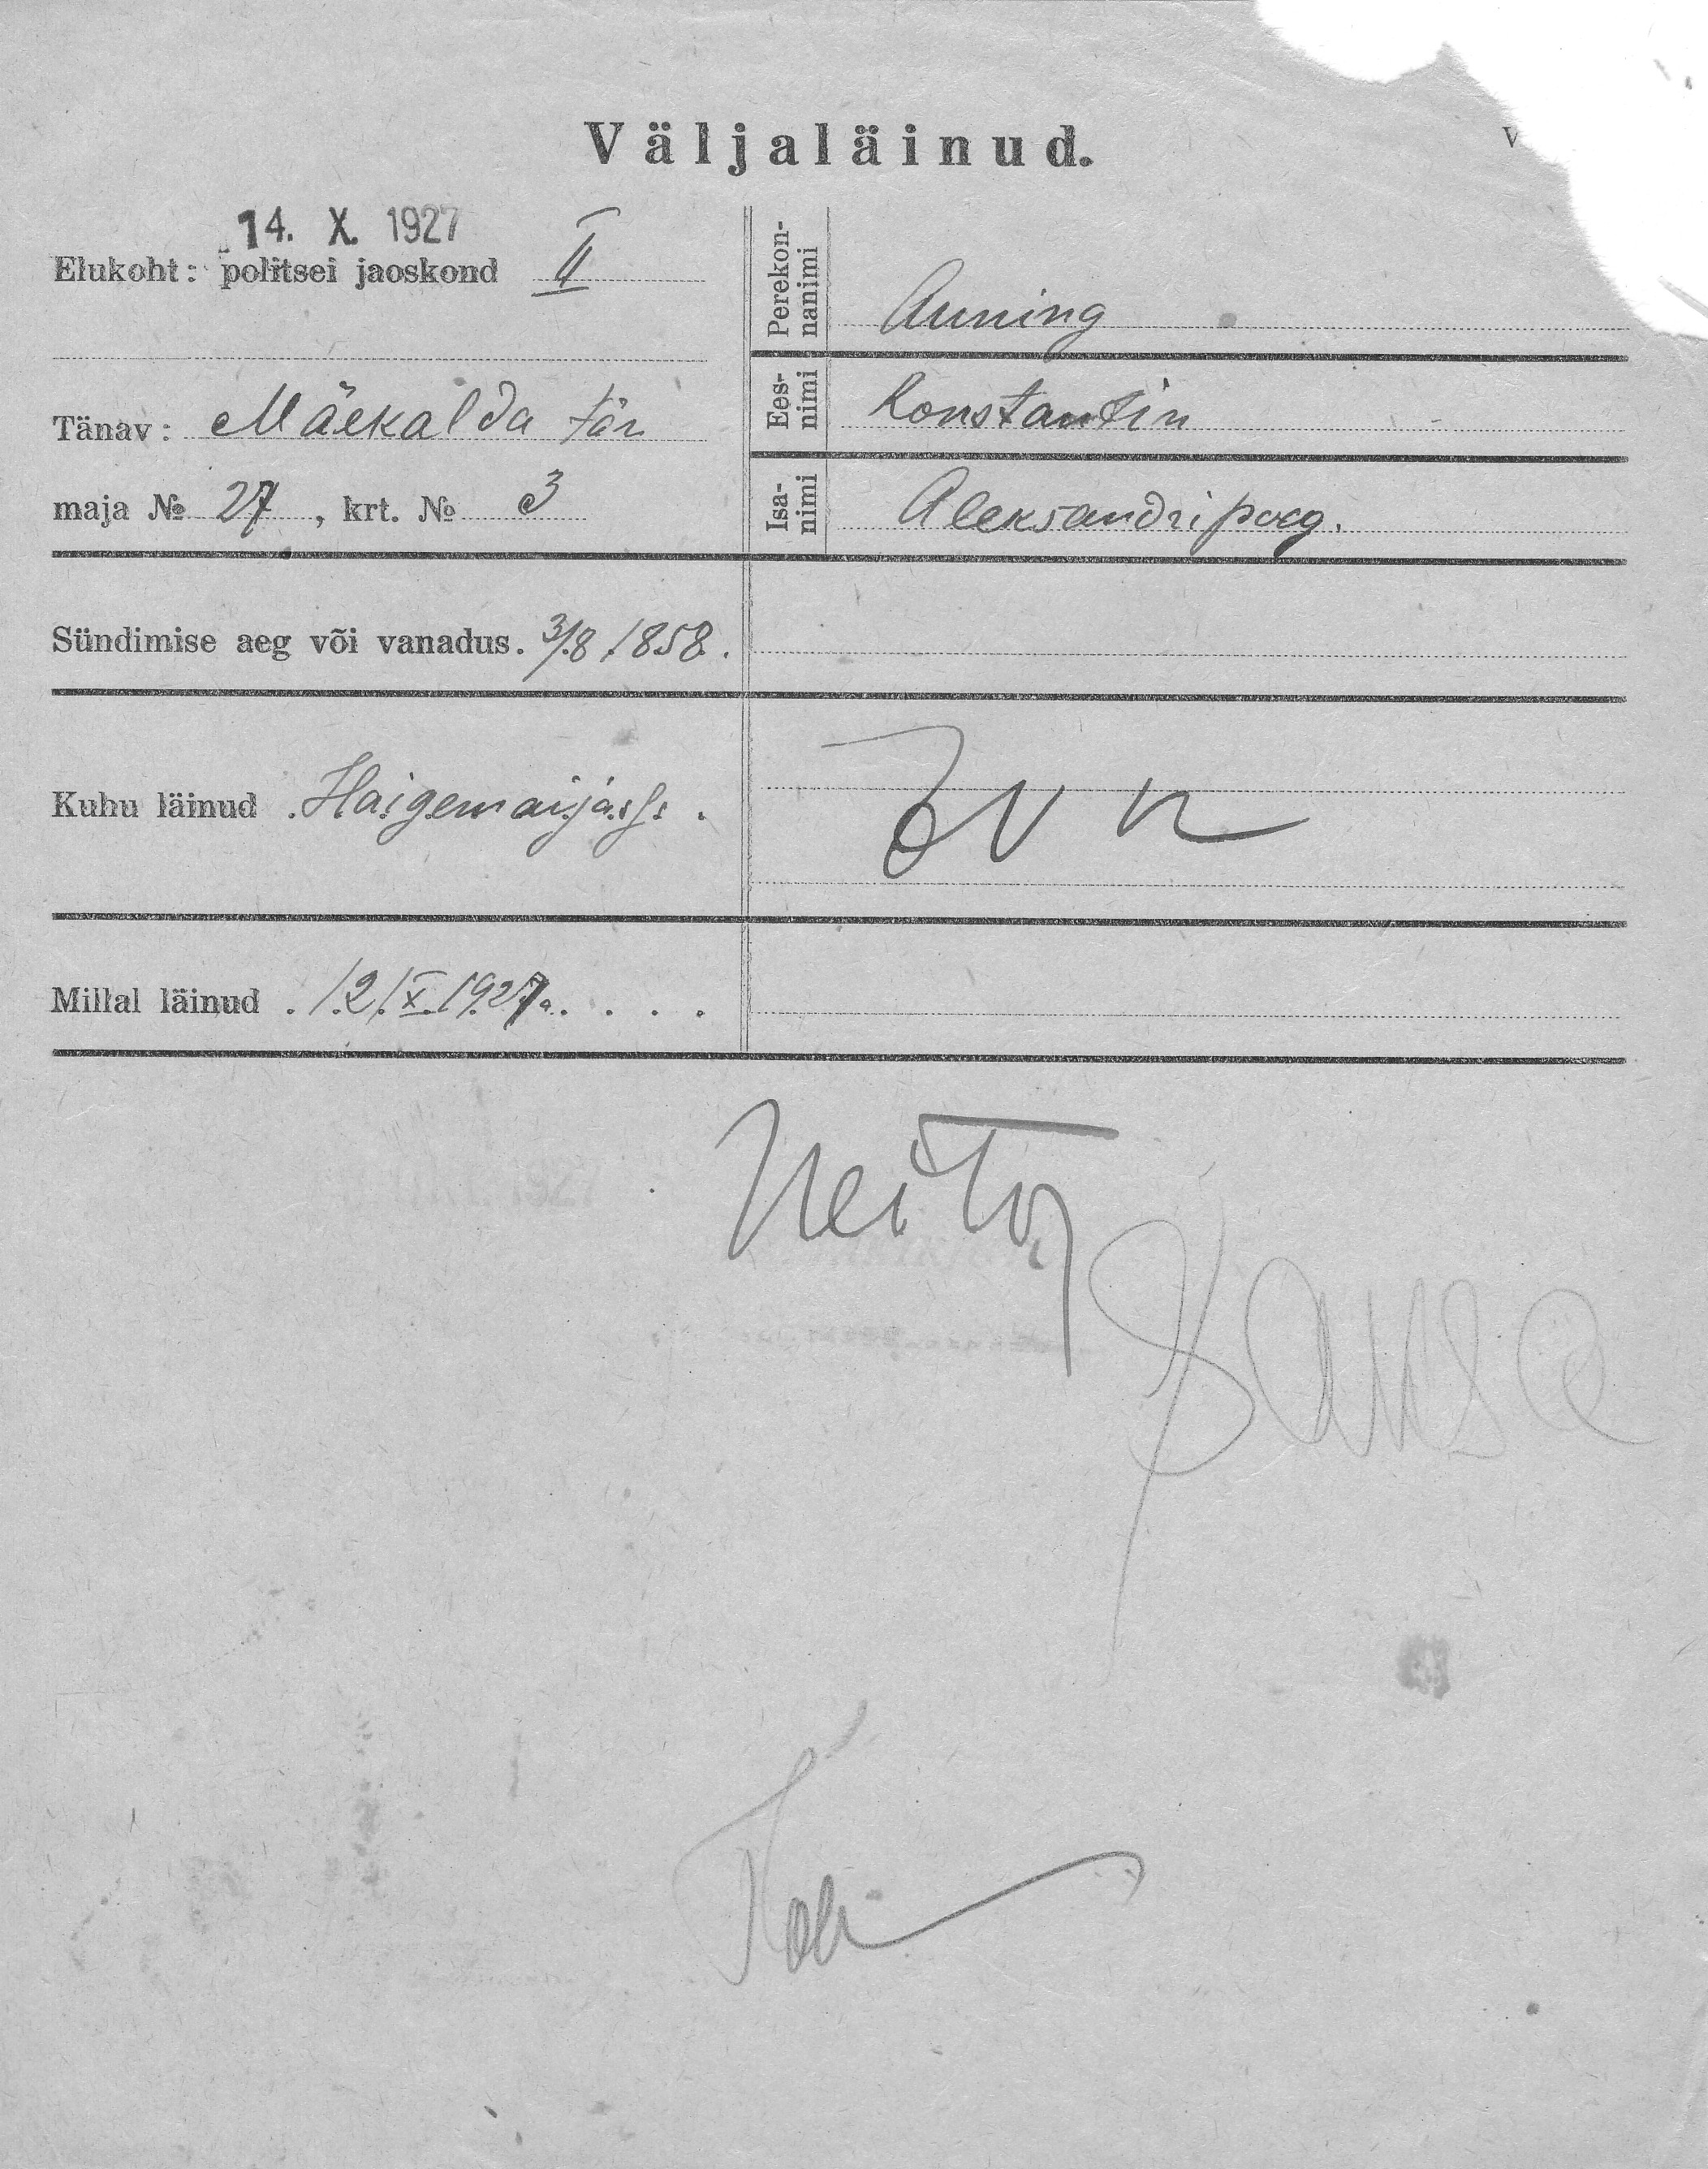 Väljaläinud.
V
14. X. 1927
Elukoht: politsei jaoskond II
Tänav: Mäekalda tän
maja № 27, krt. № 3
Perekonnanimi Auning
Eesnimi Konstantin
Isanimi Aleksandri poeg.
Sündimise aeg või vanadus. 3/8 1858.
Kuhu läinud Haigemajasse.
Millal läinud 12/X 1927a.